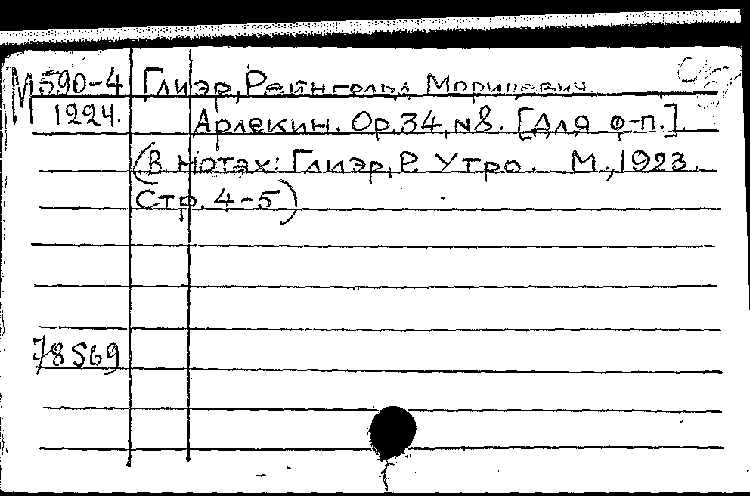 М 590-4 Глиэр, Рейнгольд Морицевич.
1224. Арлекин. Op. 34, №8. [Для ф-п.].
(В нотах: Глиэр, Р. Утро. М., 1923.
Стр. 4-5)
78569